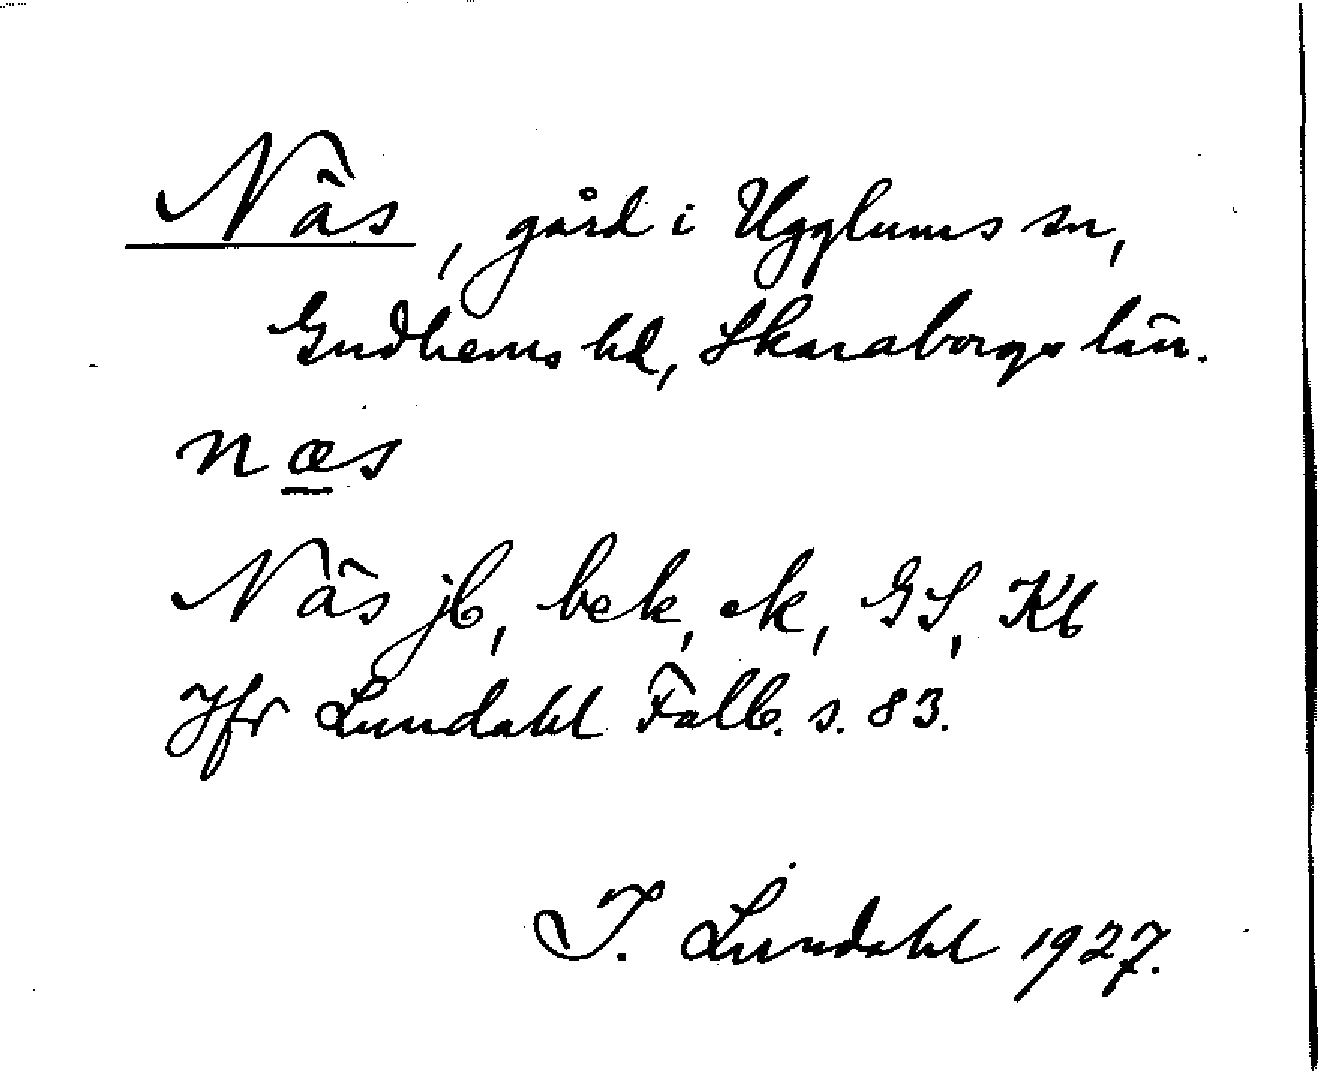 Näs, gård i Ugglums sn,
Gudhems hd, Skaraborgs län.
næs
Näs jb, bek, ek, GS, Kb
Jfr Lundahl Falb. s. 83.
I. Lundahl 1927.